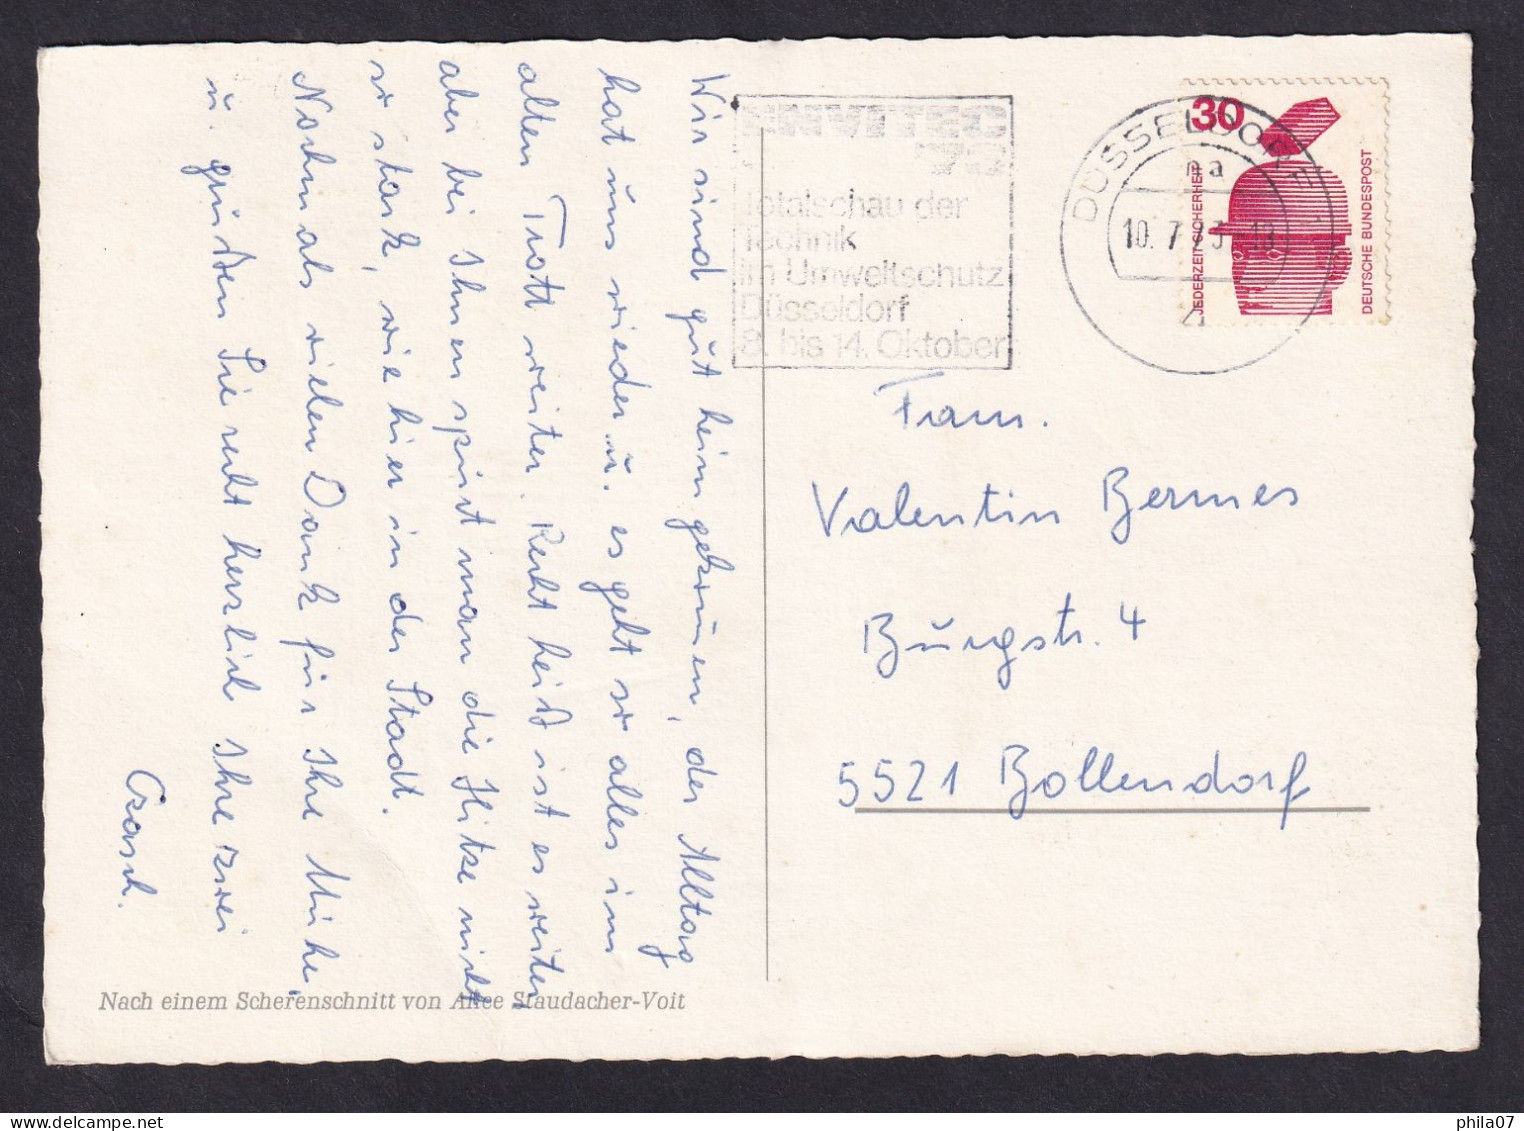 ENVITEC
73
Totalschau der
Technik
im Umweltschutz
Düsseldorf
8. bis 14. Oktober
DÜSSELDORF 1
na
10.7.73-18
30
JEDERZEIT SICHERHEIT
DEUTSCHE BUNDESPOST
Wir sind gut heim gekommen, der Alltag
hat uns wieder u. es geht so alles im
alten Trott weiter. Recht heiß ist es weiter,
aber bei Ihnen spürt man die Hitze nicht
so stark, wie hier in der Stadt.
Nochmals vielen Dank für Ihre Mühe.
u. grüßen Sie recht herzlich Ihre zwei
Fam.
Valentin Bermes
Burgstr. 4
5521 Bollendorf
Nach einem Scherenschnitt von Alice Staudacher-Voit
phila07